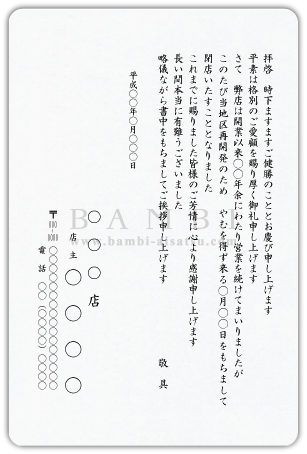 拝啓　時下ますますご健勝のこととお慶び申し上げます
平素は格別のご愛顧を賜り厚く御礼申し上げます
さて　弊店は開業以来〇〇年余にわたり営業を続けてまいりましたが
このたび当地区再開発のため　やむを得ず来る〇月〇〇日をもちまして
閉店いたすこととなりました
これまでに賜りました皆様のご芳情に心より感謝申し上げます
長い間本当に有難うございました
略儀ながら書中をもちましてご挨拶申し上げます
敬具
平成〇〇年〇月〇〇日
〇〇店
店主　〇〇〇〇
〒000-0000
〇〇〇〇〇〇〇〇〇〇〇〇
電話　〇〇(〇〇〇)〇〇〇〇
BANBI
www.bambi-aisatsu.com